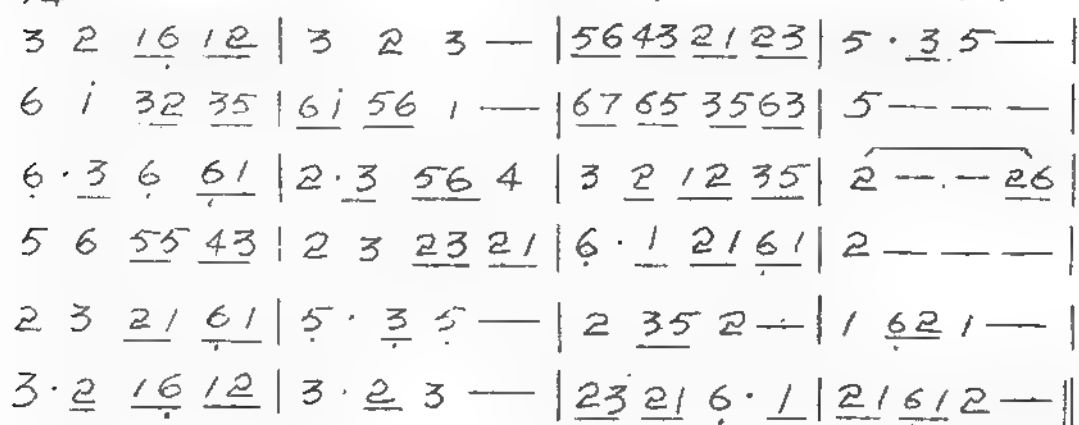 3 2 1̲6̣̲ 1̲2̲ | 3 2 3 — | 5̲6̲ 4̲3̲ 2̲1̲ 2̲3̲ | 5 · 3̲ 5 — |
6 i 3̲2̲ 3̲5̲ | 6̲i̲ 5̲6̲ 1 — | 6̲7̲ 6̲5̲ 3̲5̲ 6̲3̲ | 5 — — — |
6̣ · 3̲ 6̣ 6̣̲1̲ | 2 · 3̲ 5̲6̲ 4 | 3 2̲ 1̲2̲ 3̲5̲ | 2 — . — 2̲6̲ |
5 6 5̲5̲ 4̲3̲ | 2 3 2̲3̲ 2̲1̲ | 6̣ · 1̲ 2̲1̲ 6̣̲1̲ | 2 — — — |
2 3 2̲1̲ 6̣̲1̲ | 5̣ · 3̣̲ 5̣ — | 2 3̲5̲ 2 — | 1 6̣̲2̲ 1 — |
3 · 2̲ 1̲6̣̲ 1̲2̲ | 3 · 2̲ 3 — | 2̲3̲ 2̲1̲ 6̣ · 1̲ | 2̲1̲ 6̣̲1̲ 2 — ||